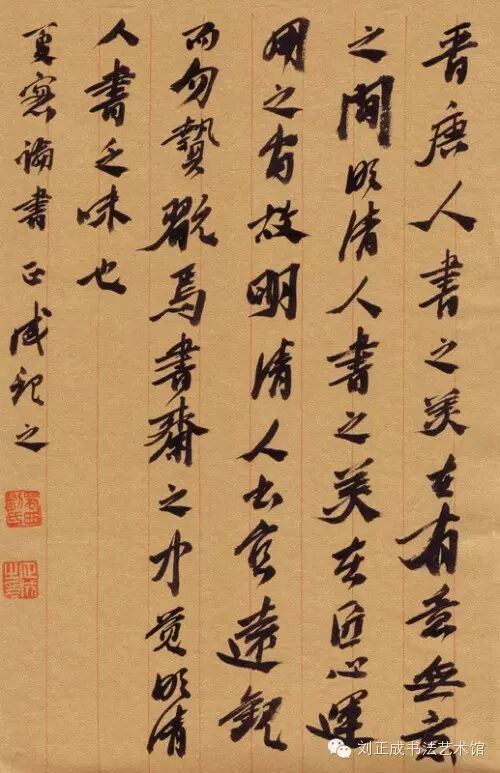 晋唐人書之美在有意無意
之間明清人書之美在匠心運
用之故明清人書宜遠觀
而勿翫焉書齋之中覚明清
人書乏味也
夏窓論書正成之
刘正成书法艺术馆